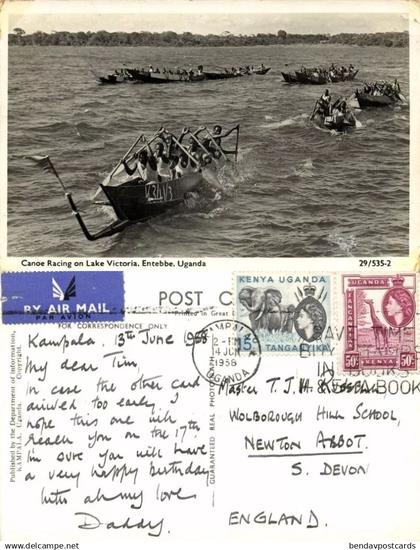 Canoe Racing on Lake Victoria. Entebbe. Uganda
29/535-2
BY AIR MAIL
PAR AVION
POST CARD
FOR CORRESPONDENCE ONLY
Printed in Great
Published by the Department of Information,
KAMPALA. Uganda Copyright.
GUARANTEED REAL PHOTOGRAPH
KENYA UGANDA
TANGANYIKA
15c
50c 50c
TANGANYIKA
KENYA
KAMPALA
2-PM
14 JUN
1958
UGANDA
SAVE TIME
BUY
IN
A BOOK
Kampala. 13th June 1958
My dear Tim,
In case the other card
arrived too early I
hope this one will
reach you on the 17th.
I'm sure you will have
a very happy birthday
With all my love
Daddy
Master T. J. H.
Wolborough Hill School,
Newton Abbot.
S. Devon
England.
www.bendavpostcards.com
bendavpostcards